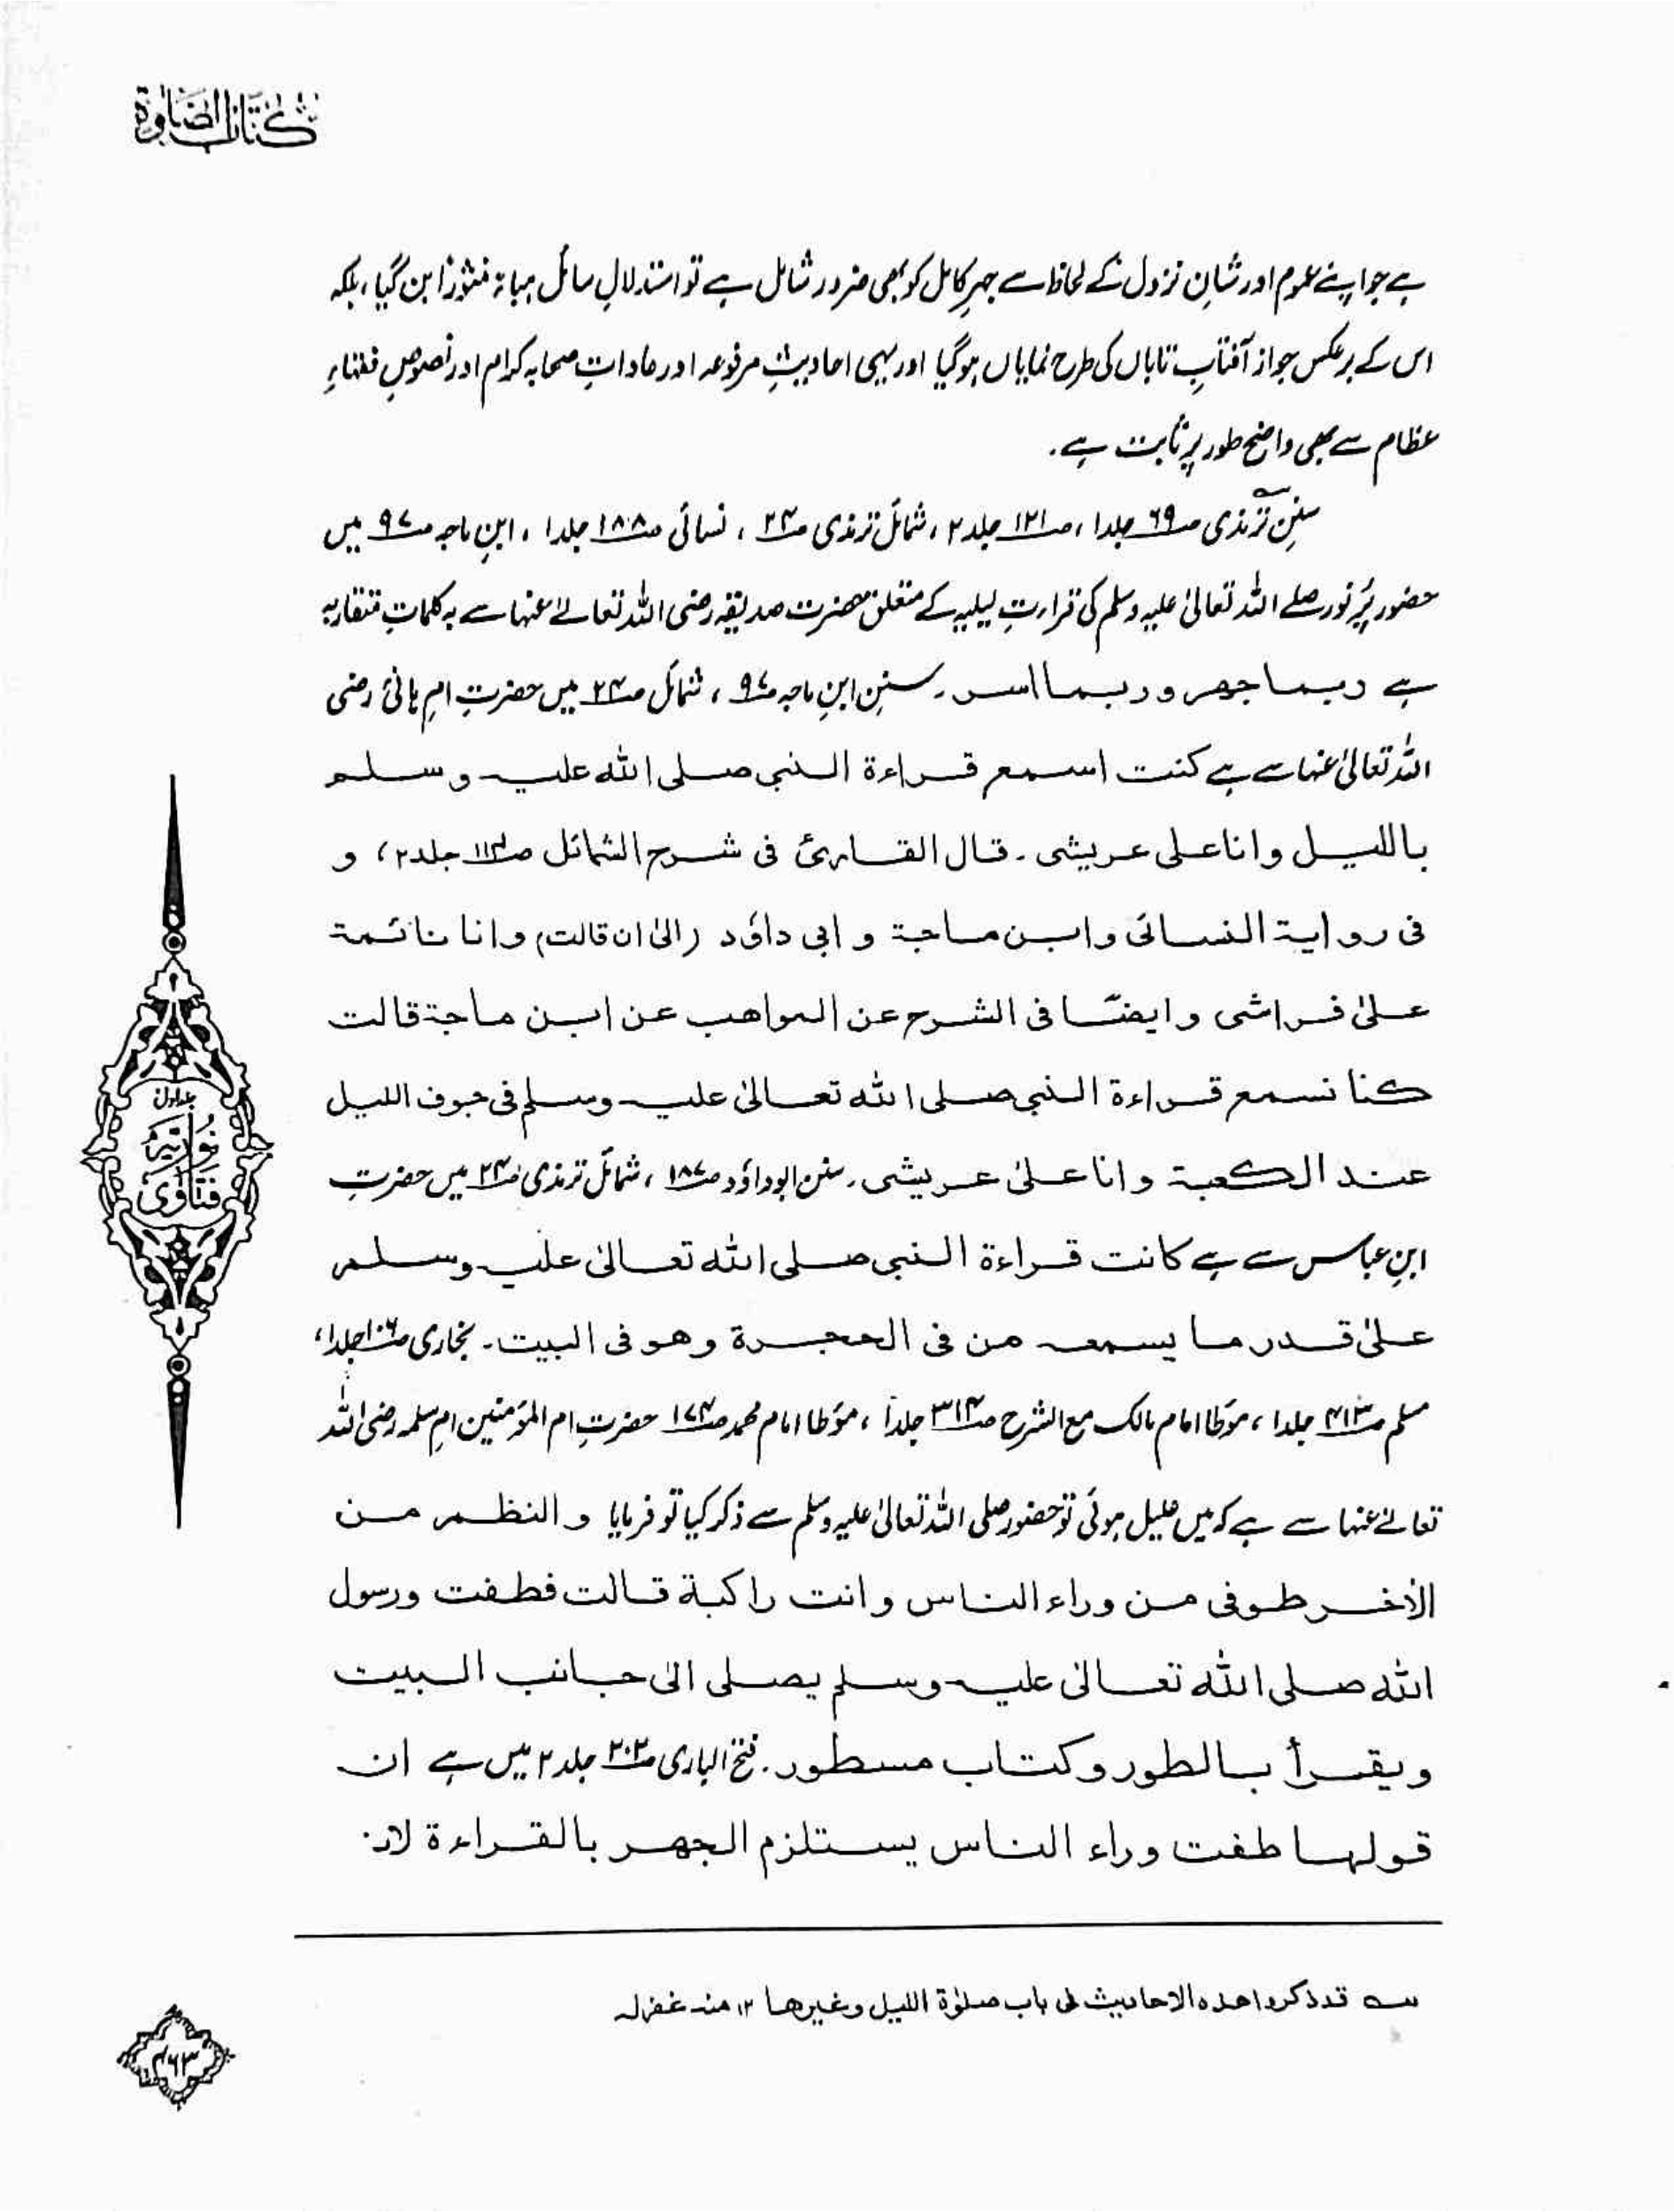 کتاب الصلوٰۃ
ہے جو اپنے عموم اور شانِ نزول کے لحاظ سے جہرِ کامل کو بھی ضرور شامل ہے تو استدلالِ سائل ہباءً منثوراً بن گیا، بلکہ
اس کے برعکس جواز آفتابِ تاباں کی طرح نمایاں ہوگیا اور یہی احادیثِ مرفوعہ اور عاداتِ صحابہ کرام اور نصوصِ فقہاءِ
عظام سے بھی واضح طور پر ثابت ہے۔
سننِ ترمذی ص۶۹ جلد۱، ص۱۲۱ جلد۲، شمائل ترمذی ص۲۴، نسائی ص۱۸۸ جلد۱، ابنِ ماجہ ص۹۷ میں
حضور پُر نور صلے اللہ تعالیٰ علیہ وسلم کی قراءتِ لیلیہ کے متعلق حضرت صدیقہ رضی اللہ تعالےٰ عنہا سے بہ کلماتِ متقاربہ
ہے ربما جهر و ربما اسر۔ سننِ ابنِ ماجہ ص۹۷، شمائل ص۲۴ میں حضرتِ امِ ہانئ رضی
اللہ تعالیٰ عنہا سے ہے کنت اسمع قراءة النبی صلی الله علیه وسلم
باللیل وانا علی عریشی۔ قال القارئ فی شرح الشمائل ص۱۱۴ جلد۲، و
فی روایة النسائی وابن ماجة و ابی داؤد (الیٰ ان قالت) وانا نائمة
علیٰ فراشی وایضًا فی الشرح عن المواهب عن ابن ماجة قالت
کنا نسمع قراءة النبی صلی الله تعالیٰ علیه وسلم فی جوف اللیل
عند الکعبة وانا علیٰ عریشی۔ سنن ابوداؤد ص۱۸۷، شمائل ترمذی ص۲۴ میں حضرتِ
ابنِ عباس سے ہے کانت قراءة النبی صلی الله تعالیٰ علیه وسلم
علیٰ قدر ما یسمعه من فی الحجرة وهو فی البیت۔ بخاری ص۱۰۶ جلد۱،
مسلم ص۴۱۳ جلد۱، مؤطا امام مالک مع الشرح ص۳۱۴ جلد۱، مؤطا امام محمد ص۱۷۴ حضرتِ ام المؤمنین امِ سلمہ رضی اللہ
تعالےٰ عنہا سے ہے کہ میں علیل ہوئی تو حضور صلی اللہ تعالیٰ علیہ وسلم سے ذکر کیا تو فرمایا والنظم من
الأخر طوفی من وراء الناس وانت راکبة قالت فطفت ورسول
الله صلی الله تعالیٰ علیه وسلم یصلی الیٰ جانب البیت
ویقرأ بالطور وکتاب مسطور۔ فتح الباری ص۲۰۲ جلد۲ میں ہے ان
قولها طفت وراء الناس یستلزم الجهر بالقراءة لان
جلد اول
نوریہ
فتاویٰ
قد ذکروا هذه الاحادیث فی باب صلوٰة اللیل وغیرها ۱۲ منه غفرله
۴۶۳